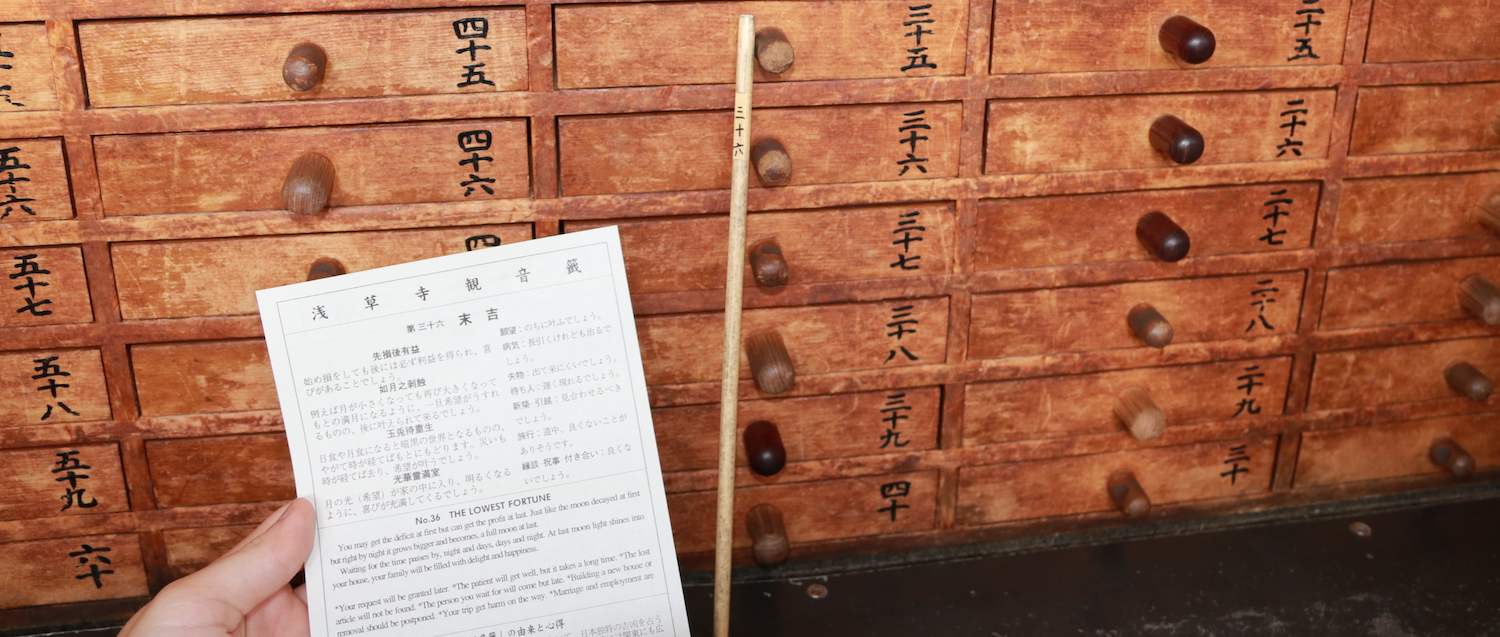 四十五
三十五
二十五
五十六
四十六
三十六
二十六
三十六
五十七
三十七
二十七
五十八
三十八
二十八
五十九
三十九
二十九
六十
四十
三十
浅草寺観音籤
第三十六 末吉
先損後有益
始め損をしても後には必ず利益を得られ、喜
びがあることでしょう。
如月之剥蝕
例えば月が小さくなっても再び大きくなって
もとの満月になるように、一旦希望がうすれ
るものの、後に叶えられて来るでしょう。
玉兎待重生
日食や月食になると暗黒の世界となるものの、
やがて時が経てばもとにもどります。災いも
時が経てば去り、希望が叶うでしょう。
光華當満室
月の光（希望）が家の中に入り、明るくなる
ように、喜びが充満してくるでしょう。
願望：のちに叶ふでしょう。
病気：長引くけれども治るで
しょう。
失物：出て来にくいでしょう。
待ち人：遅く現れるでしょう。
新築・引越：見合わせるべき
でしょう。
旅行：道中、良くないことが
ありそうです。
縁談・祝事・付き合い：良くな
いでしょう。
No.36 THE LOWEST FORTUNE
You may get the deficit at first but can get the profit at last. Just like the moon decayed at first
but right by night it grows bigger and becomes, a full moon at last.
Waiting for the time passes by, night and days, days and night. At last moon light shines into
your house, your family will be filled with delight and happiness.
*Your request will be granted later. *The patient will get well, but it takes a long time. *The lost
article will not be found. *The person you wait for will come but late. *Building a new house or
removal should be postponed. *Your trip get harm on the way. *Marriage and employment are
」の由来と心得